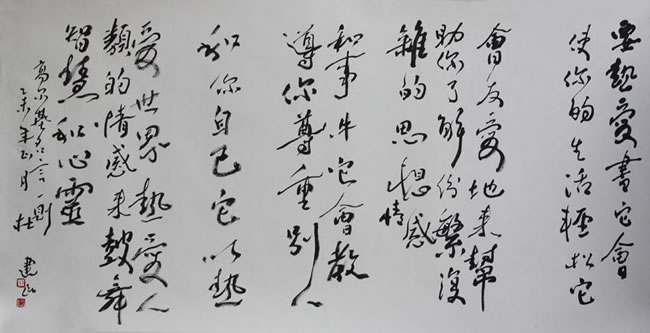 要熱愛書它會
使你的生活輕松它
會友愛地來幫
助你了解份繁複
雜的思想感情
和事件它會教
導你尊重別人
和你自己它以熱
愛世界熱愛人
類的情感來鼓舞
智慧和心靈
高尔基名言一則
乙未年 月 杜建